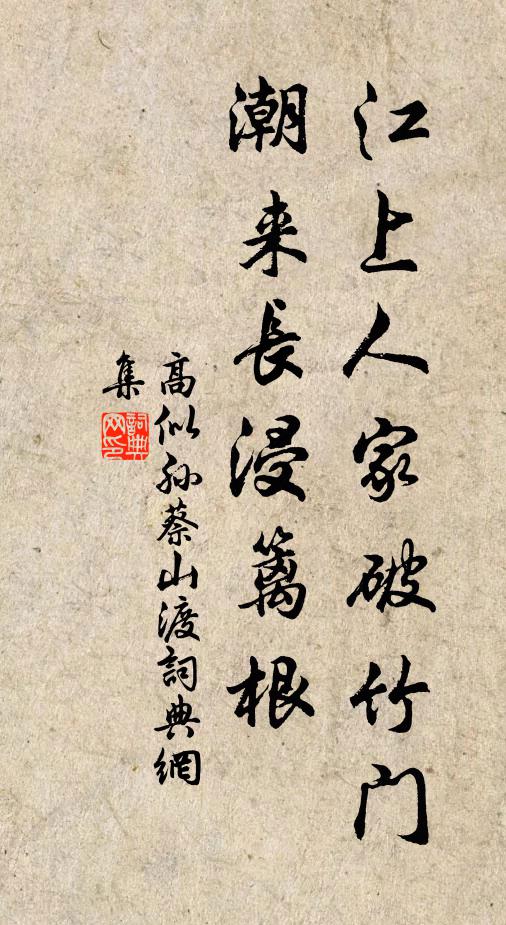 江上人家破竹门
潮来長浸籬根
高似孙蔡山渡詞典網
集
詞典网印